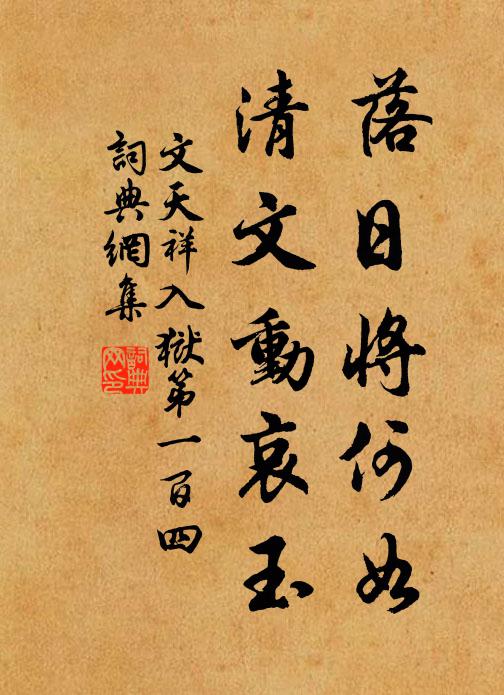 落日將何如
清文動哀玉
文天祥入獄第一百四
詞典網集
詞典網印